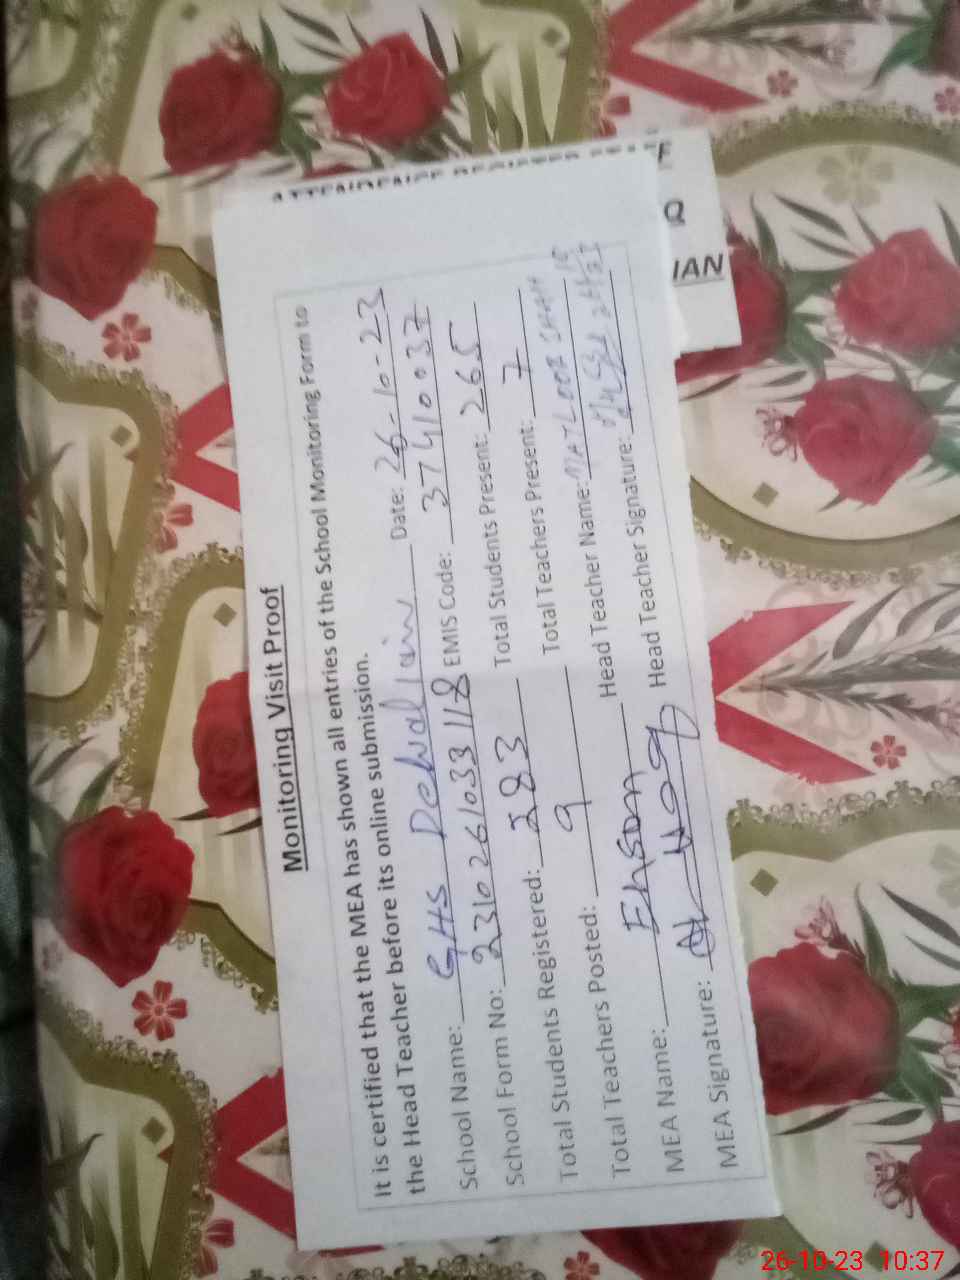 Monitoring Visit Proof
It is certified that the MEA has shown all entries of the School Monitoring Form to
the Head Teacher before its online submission.
School Name: GHS Dewalian Date: 26-10-23
School Form No: 2310261033118 EMIS Code: 37410037
Total Students Registered: 283 Total Students Present: 265
Total Teachers Posted: 9 Total Teachers Present: 7
MEA Name: Ehsan Head Teacher Name:
MEA Signature: Head Teacher Signature:
E
Q
IAN
26-10-23 10:37